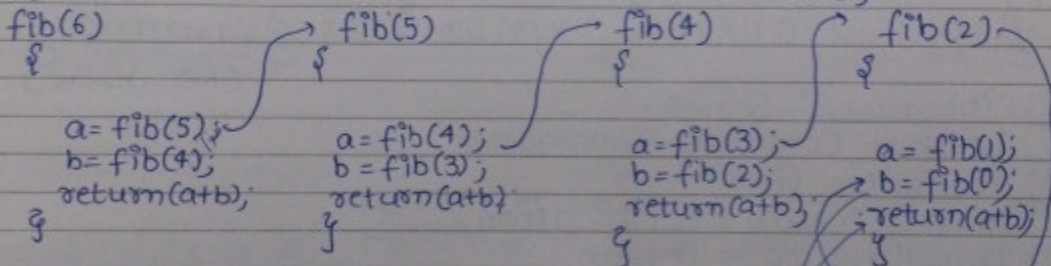 fib(6)
{
a= fib(5);
b= fib(4);
return(a+b);
}
fib(5)
{
a= fib(4);
b= fib(3);
return(a+b)
}
fib(4)
{
a= fib(3);
b= fib(2);
return(a+b);
}
fib(2)
{
a= fib(1);
b= fib(0);
return(a+b);
}